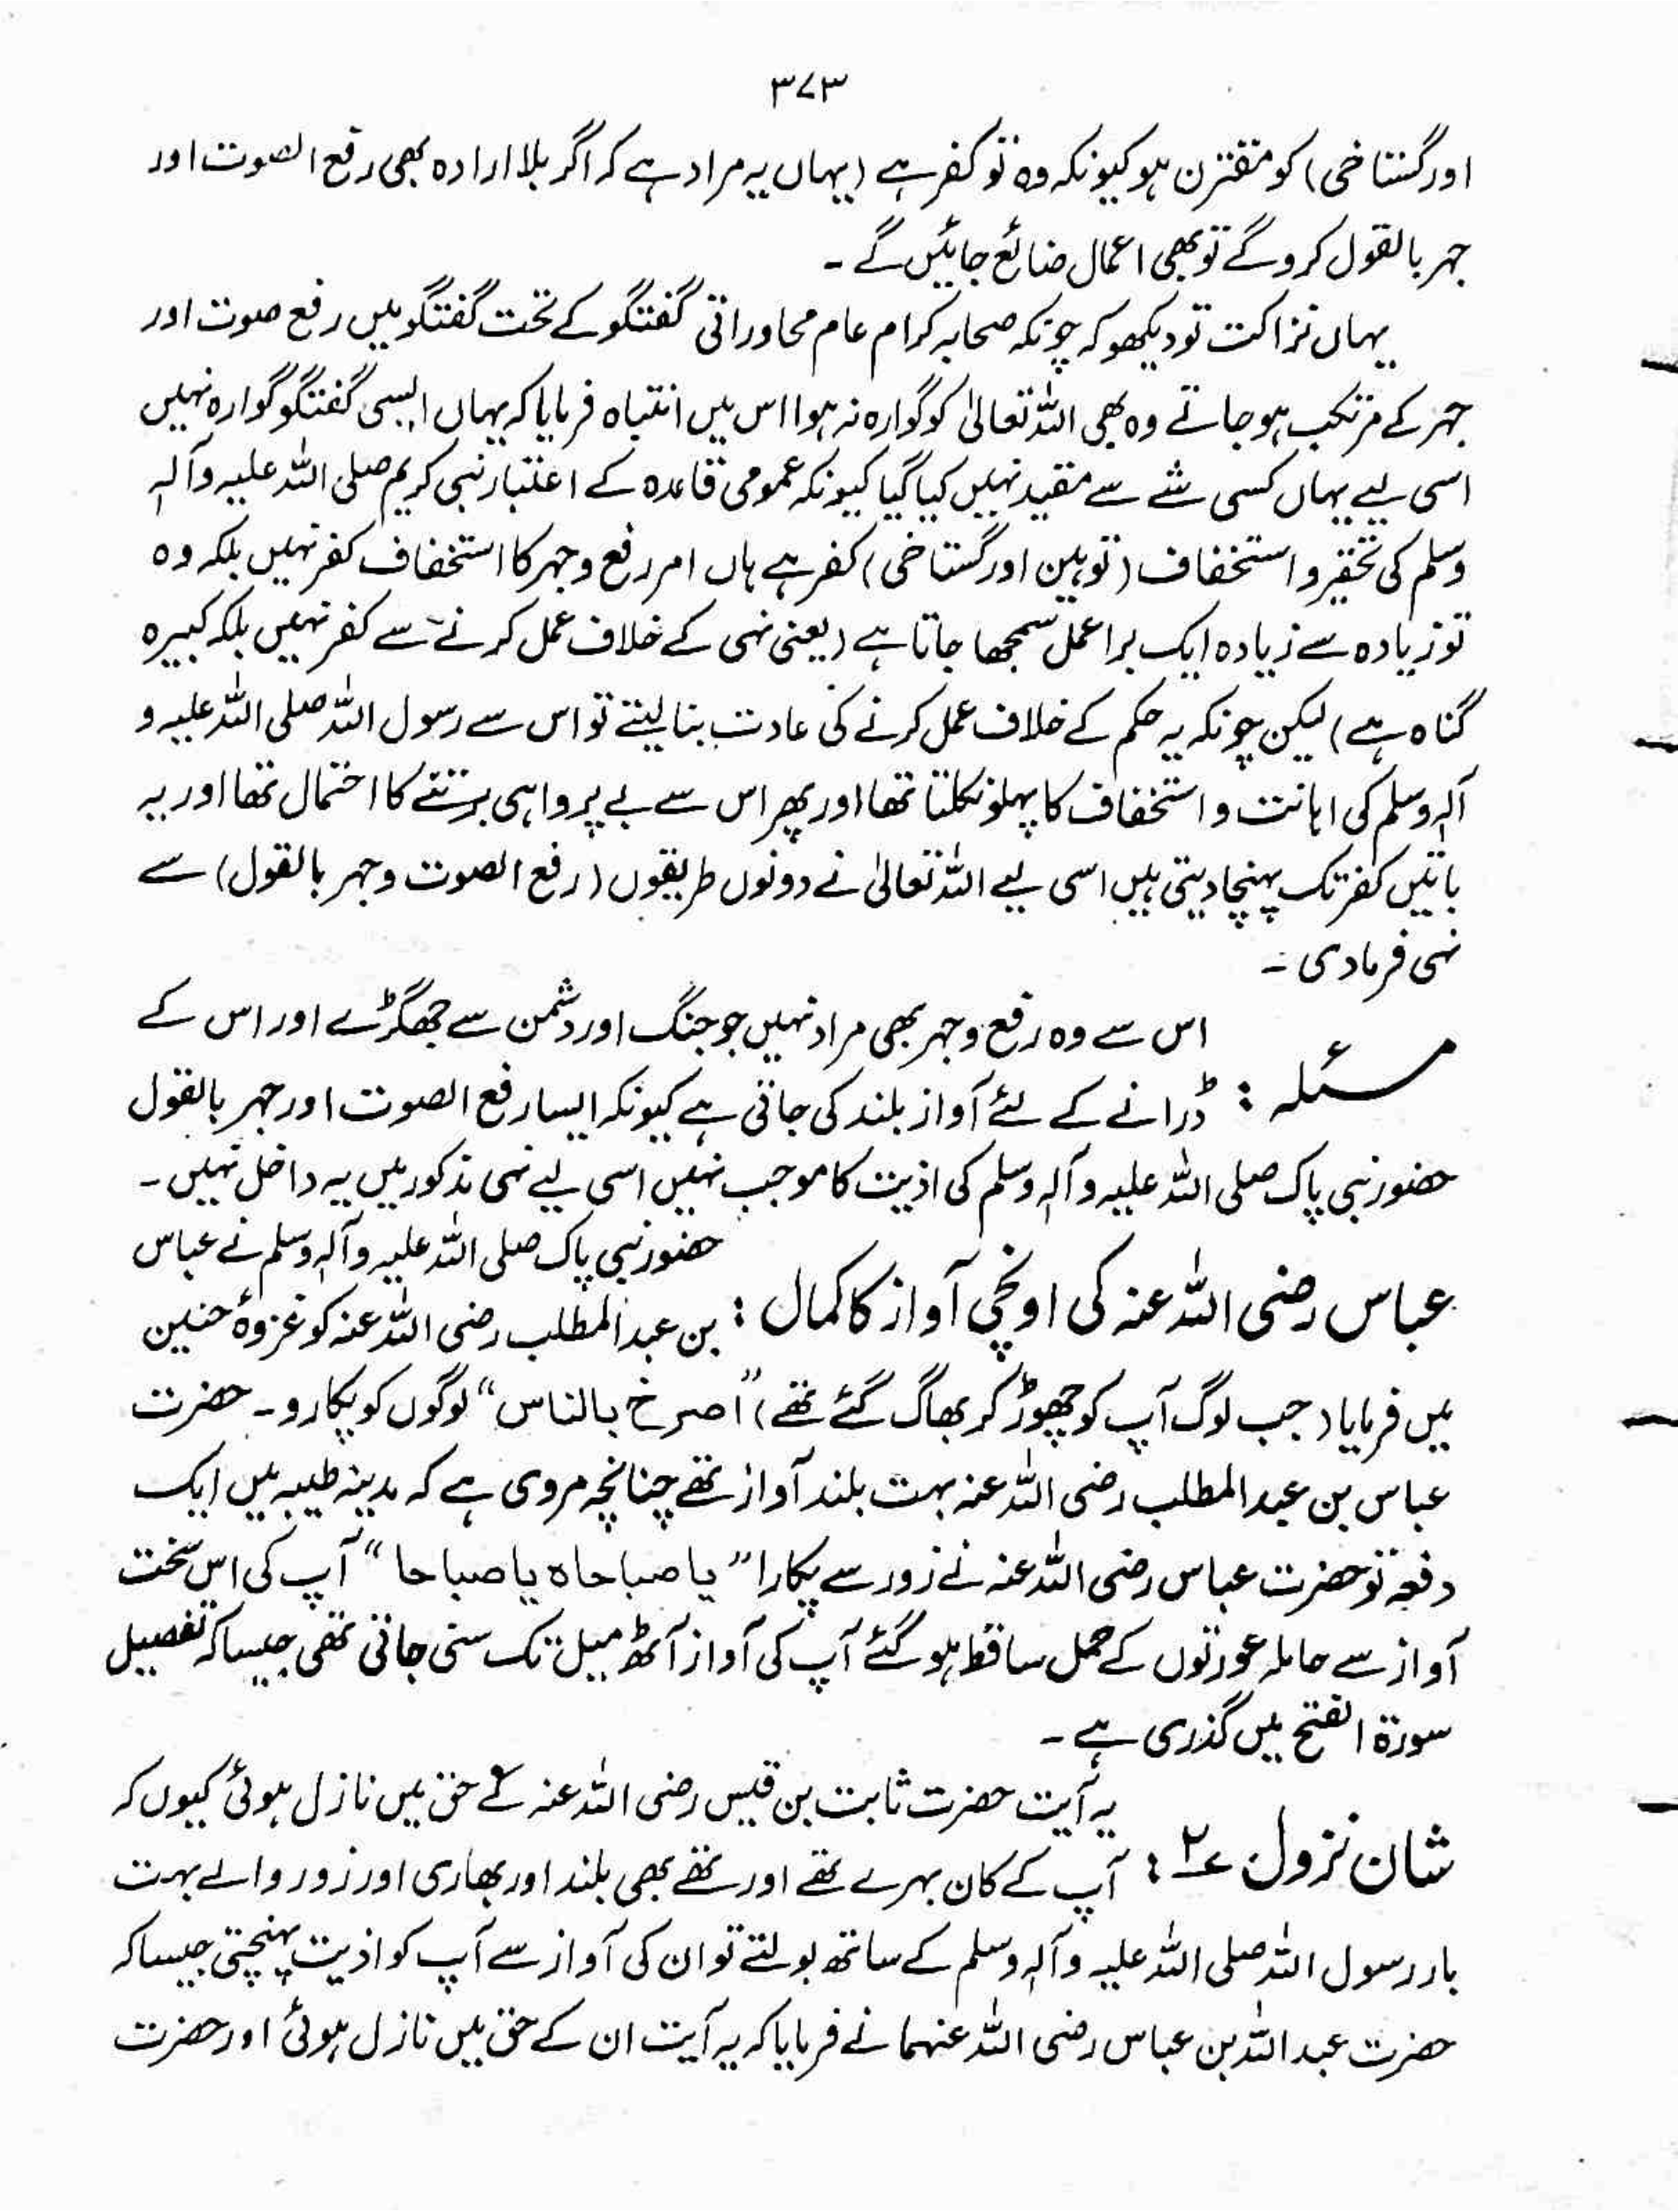 ۳۷۳
اور گستاخی) کو مقترن ہو کیونکہ وہ تو کفر ہے (یہاں یہ مراد ہے کہ اگر بلا ارادہ بھی رفع الصوت اور
جہر بالقول کروگے تو بھی اعمال ضائع جائیں گے ۔
یہاں نزاکت تو دیکھو کہ چونکہ صحابہ کرام عام محاوراتی گفتگو کے تحت گفتگو میں رفع صوت اور
جہر کے مرتکب ہو جاتے وہ بھی اللہ تعالیٰ کو گوارہ نہ ہوا اس میں انتباہ فرمایا کہ یہاں ایسی گفتگو گوارہ نہیں
اسی لیے یہاں کسی شے سے مقید نہیں کیا گیا کیونکہ عمومی قاعدہ کے اعتبار نبی کریم صلی اللہ علیہ وآلہ
وسلم کی تحقیر و استخفاف (توہین اور گستاخی) کفر ہے ہاں امر رفع وجہر کا استخفاف کفر نہیں بلکہ وہ
تو زیادہ سے زیادہ ایک برا عمل سمجھا جاتا ہے (یعنی نہی کے خلاف عمل کرنے سے کفر نہیں بلکہ کبیرہ
گناہ ہے) لیکن چونکہ یہ حکم کے خلاف عمل کرنے کی عادت بنا لیتے تو اس سے رسول اللہ صلی اللہ علیہ و
آلہ وسلم کی اہانت و استخفاف کا پہلو نکلتا تھا اور پھر اس سے بے پرواہی برتنے کا احتمال تھا اور یہ
باتیں کفر تک پہنچا دیتی ہیں اسی لیے اللہ تعالیٰ نے دونوں طریقوں (رفع الصوت وجہر بالقول) سے
نہی فرما دی ۔
اس سے وہ رفع وجہر بھی مراد نہیں جو جنگ اور دشمن سے جھگڑے اور اس کے
مسئلہ : ڈرانے کے لئے آواز بلند کی جاتی ہے کیونکہ ایسا رفع الصوت اور جہر بالقول
حضور نبی پاک صلی اللہ علیہ وآلہ وسلم کی اذیت کا موجب نہیں اسی لیے نہی مذکور میں یہ داخل نہیں ۔
حضور نبی پاک صلی اللہ علیہ وآلہ وسلم نے عباس
عباس رضی اللہ عنہ کی اونچی آواز کا کمال : بن عبدالمطلب رضی اللہ عنہ کو غزوۂ حنین
میں فرمایا (جب لوگ آپ کو چھوڑ کر بھاگ گئے تھے) "اصرخ بالناس" لوگوں کو پکارو۔ حضرت
عباس بن عبدالمطلب رضی اللہ عنہ بہت بلند آواز تھے چنانچہ مروی ہے کہ مدینہ طیبہ میں ایک
دفعہ تو حضرت عباس رضی اللہ عنہ نے زور سے پکارا "یا صباحاہ یا صباحا" آپ کی اس سخت
آواز سے حاملہ عورتوں کے حمل ساقط ہو گئے آپ کی آواز آٹھ میل تک سنی جاتی تھی جیسا کہ تفصیل
سورۃ الفتح میں گذری ہے ۔
یہ آیت حضرت ثابت بن قیس رضی اللہ عنہ کے حق میں نازل ہوئی کیوں کہ
شان نزول ۲ : آپ کے کان بہرے تھے اور تھے بھی بلند اور بھاری اور زور والے بہت
بار رسول اللہ صلی اللہ علیہ وآلہ وسلم کے ساتھ بولتے تو ان کی آواز سے آپ کو اذیت پہنچتی جیسا کہ
حضرت عبداللہ بن عباس رضی اللہ عنہما نے فرمایا کہ یہ آیت ان کے حق میں نازل ہوئی اور حضرت